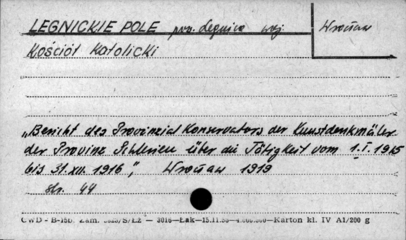 LEGNICKIE POLE pow. Legnica woj. Wrocław
Kościół Katolicki
„Bericht des Provinzial Konservators der Kunstdenkmäler
der Provinz Schlesien über die Tätigkeit vom 1.I.1915
bis 31.XII.1916", Wrocław 1919
str. 44
CWD - B-156 Zam. S/Łz — 3016—Łak—15.11.55— —Karton kl. IV A1/200 g